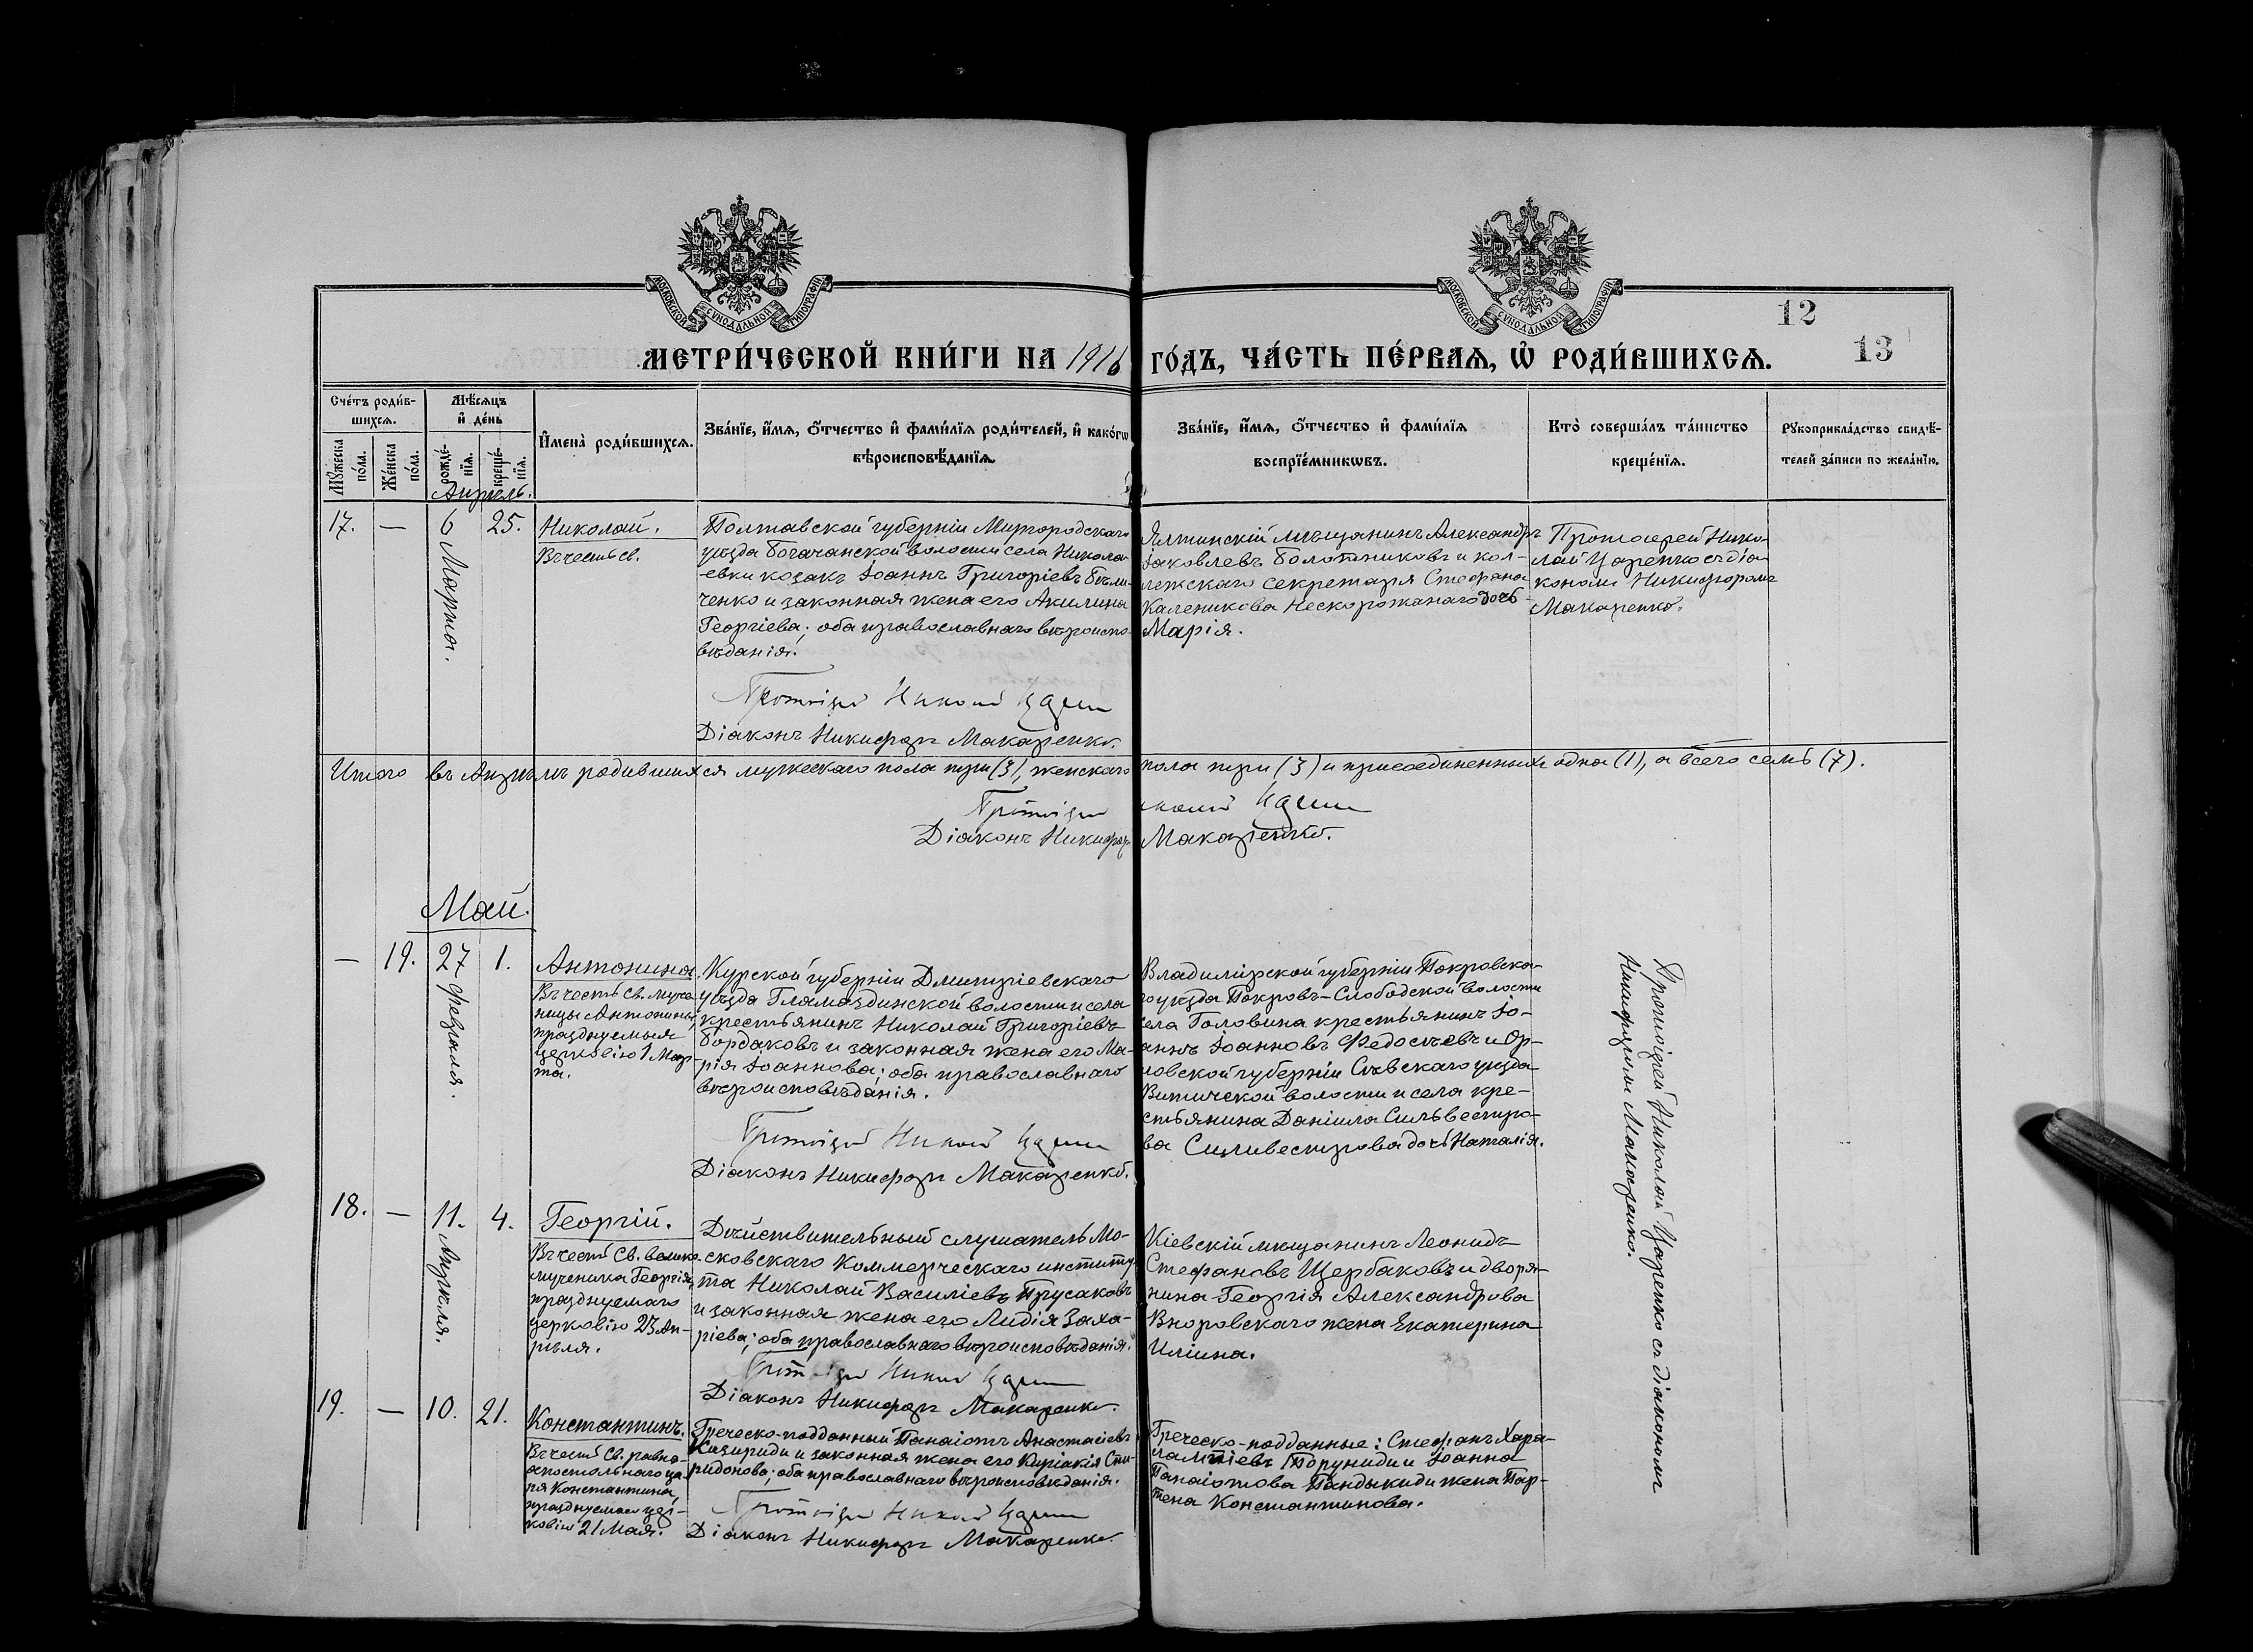 МОСКОВСКОЙ СѴНОДАЛЬНОЙ ТИПОГРАФІИ
МОСКОВСКОЙ СѴНОДАЛЬНОЙ ТИПОГРАФІИ
12
13
МЕТРИ́ЧЕСКОЙ КНИ́ГИ НА 1916 ГО́ДЪ, ЧА́СТЬ ПЕ́РВАЯ, Ѡ҆ РОДИ́ВШИХСѦ.
Сче́тъ роди́в-
шихсѧ.
Мꙋ́жеска по́ла.
Же́нска по́ла.
Мѣ́сѧцъ
и҆ де́нь
рожде́-
нїѧ.
креще́-
нїѧ.
И҆мена̀ роди́вшихсѧ.
Зва́нїе, и҆́мѧ, ѻ҆́тчество и҆ фами́лїѧ роди́телей, и҆ како́гѡ
вѣроисповѣ́данїѧ.
Зва́нїе, и҆́мѧ, ѻ҆́тчество и҆ фами́лїѧ
воспрїе́мникѡвъ.
Кто̀ соверша́лъ та́инство
креще́нїѧ.
Рꙋкоприкла́дство свидѣ́-
телей за́писи по жела́нїю.
Апрель.
17.
—
6
Марта.
25.
Николай.
Въ честь св.
Полтавской губерніи Миргородскаго
уѣзда Богачанской волости села Никола-
евки козакъ Іоаннъ Григоріевъ Бѣли-
ченко и законная жена его Акилина
Георгіева; оба православнаго вѣроиспо-
вѣданія.
Протоіерей Николай Царенко
Діаконъ Никифоръ Макаренко.
Ялтинскій мѣщанинъ Александръ
Іаковлевъ Болотниковъ и кол-
лежскаго секретаря Стефана
Каленикова Нескорожанаго дочь
Марія.
Протоіерей Нико-
лай Царенко съ діа-
кономъ Никифоромъ
Макаренко.
Итого въ Апрѣлѣ родившихся мужескаго пола три (3), женскаго пола три (3) и присоединенныхъ одна (1), а всего семь (7).
Протоіерей Николай Царенко
Діаконъ Никифоръ Макаренко.
Май.
—
19.
27
Февраля.
1.
Антонина
Въ честь св. муче-
ницы Антонины,
празднуемыя
церковію 1 Мар-
та.
Курской губерніи Дмитріевскаго
уѣзда Гламаздинской волости и села
крестьянинъ Николай Григоріевъ
Бордаковъ и законная жена его Ма-
рія Іоаннова; оба православнаго
вѣроисповѣданія.
Протоіерей Николай Царенко
Діаконъ Никифоръ Макаренко.
Владимірской губерніи Покровска-
го уѣзда Покровъ-Слободской волости
села Головина крестьянинъ Іо-
аннъ Іоанновъ Ѳедосѣевъ и Ор-
ловской губерніи Сѣвскаго уѣзда
Витичской волости и села кре-
стьянина Даніила Сильвестро-
ва Силивестрова дочь Наталія.
Протоіерей Николай Царенко съ діакономъ
Никифоромъ Макаренко.
18.
—
11.
Апрѣля.
4.
Георгій.
Въ честь Св. велико-
мученика Георгія,
празднуемаго
церковію 23 Ап-
рѣля.
Дѣйствительный слушатель Мо-
сковскаго Коммерческаго институ-
та Николай Василіевъ Прусаковъ
и законная жена его Лидія Заха-
ріева; оба православнаго вѣроисповѣданія.
Протоіерей Николай Царенко
Діаконъ Никифоръ Макаренко.
Кіевскій мѣщанинъ Леонидъ
Стефановъ Щербаковъ и дворя-
нина Георгія Александрова
Вноровскаго жена Екатерина
Иліина.
19.
—
10.
21.
Константинъ.
Въ честь Св. равно-
апостольнаго ца-
ря Константина,
празднуемаго цер-
ковію 21 Мая.
Греческо-подданный Панаіотъ Анастасіевъ
Казириди и законная жена его Киріакія Спи-
ридонова; оба православнаго вѣроисповѣданія.
Протоіерей Николай Царенко
Діаконъ Никифоръ Макаренко.
Греческо-подданные: Стефанъ Хара-
лампіевъ Торуниди и Іоанна
Панаіотова Пандыкиди жена Пар-
тена Константинова.